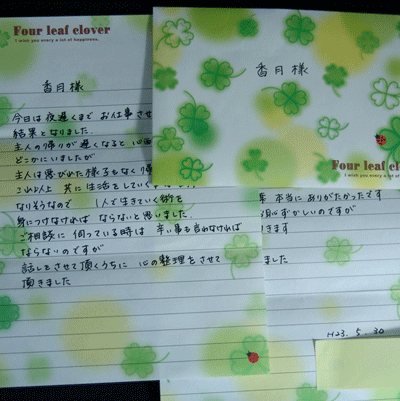 Four leaf clover
I wish you every a lot of happiness.
香月様
今日は夜遅くまで お仕事させ
結果となりました
主人の帰りが遅くなると 心
どこかにいましたが
主人は悪びれた様子もなく帰
共に生活をしていく
なりそうなので 1人で生きていく術を
身につけなければ ならないと思いました
ご相談に 伺っている時は 辛い事も言わなければ
ならないのですが
話しをさせて頂くうちに 心の整理をさせて
頂きました
香月様
Four leaf clo
I wish you every a lot of
本当に ありがたかったです
恥ずかしいのですが
きます
ました
H23. 5. 30